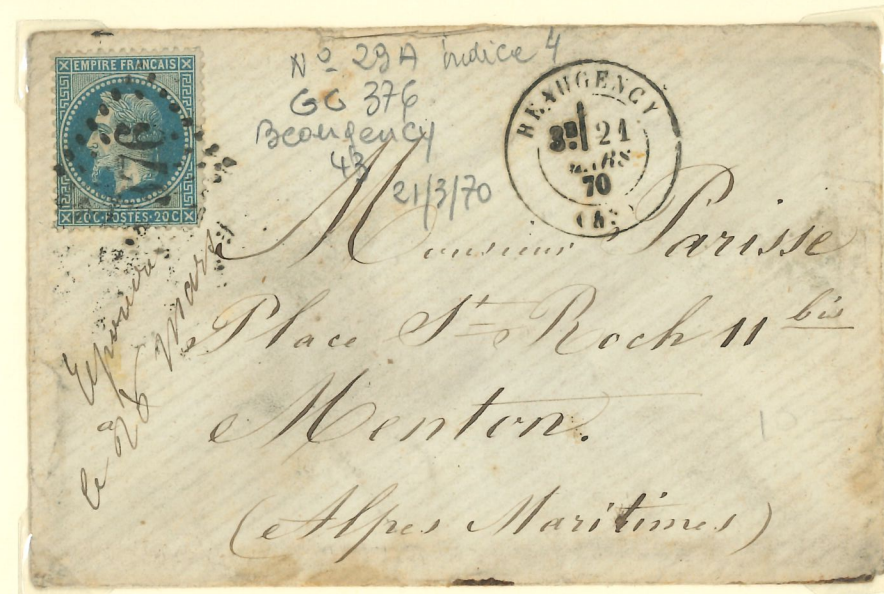 EMPIRE FRANÇAIS
20 C · POSTES · 20 C
376
No 29A indice 4
GC 376
Beaugency
43
21/3/70
BEAUGENCY
21
MARS
70
(43)
Monsieur Parisse
Place St Roch 11 bis
Menton.
(Alpes Maritimes)
le 26 Mars
10